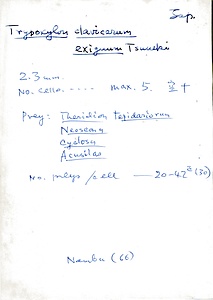 Jap.
Trypoxylon clavicerum
exiguum Tsuneki
2.3 mm.
No. cells ..... max. 5.
Prey: Theridion tepidariorum
Neoscona
Cyclosa
Acusilas
No. preys / cell — 20-42 (30)
Nambu (66)